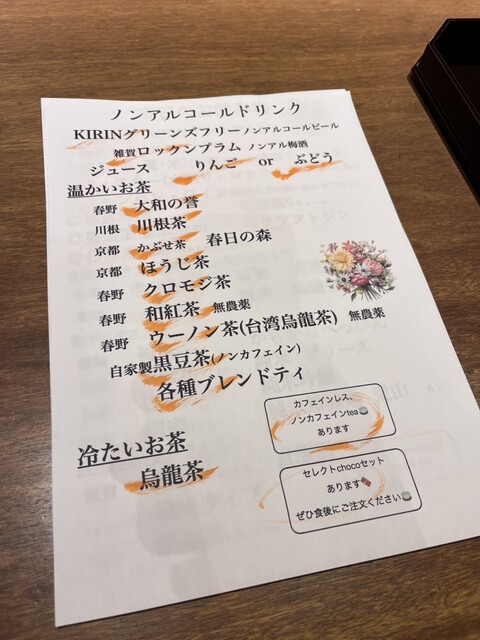 ノンアルコールドリンク
KIRINグリーンズフリーノンアルコールビール
雑賀ロックンプラム ノンアル梅酒
ジュース りんご or ぶどう
温かいお茶
春野 大和の誉
川根 川根茶
京都 かぶせ茶 春日の森
京都 ほうじ茶
春野 クロモジ茶
春野 和紅茶 無農薬
春野 ウーノン茶(台湾烏龍茶) 無農薬
自家製黒豆茶(ノンカフェイン)
各種ブレンドティ
カフェインレス、
ノンカフェインtea🍵
あります
冷たいお茶
烏龍茶
セレクトchocoセット
あります🍫
ぜひ食後にご注文ください🍵